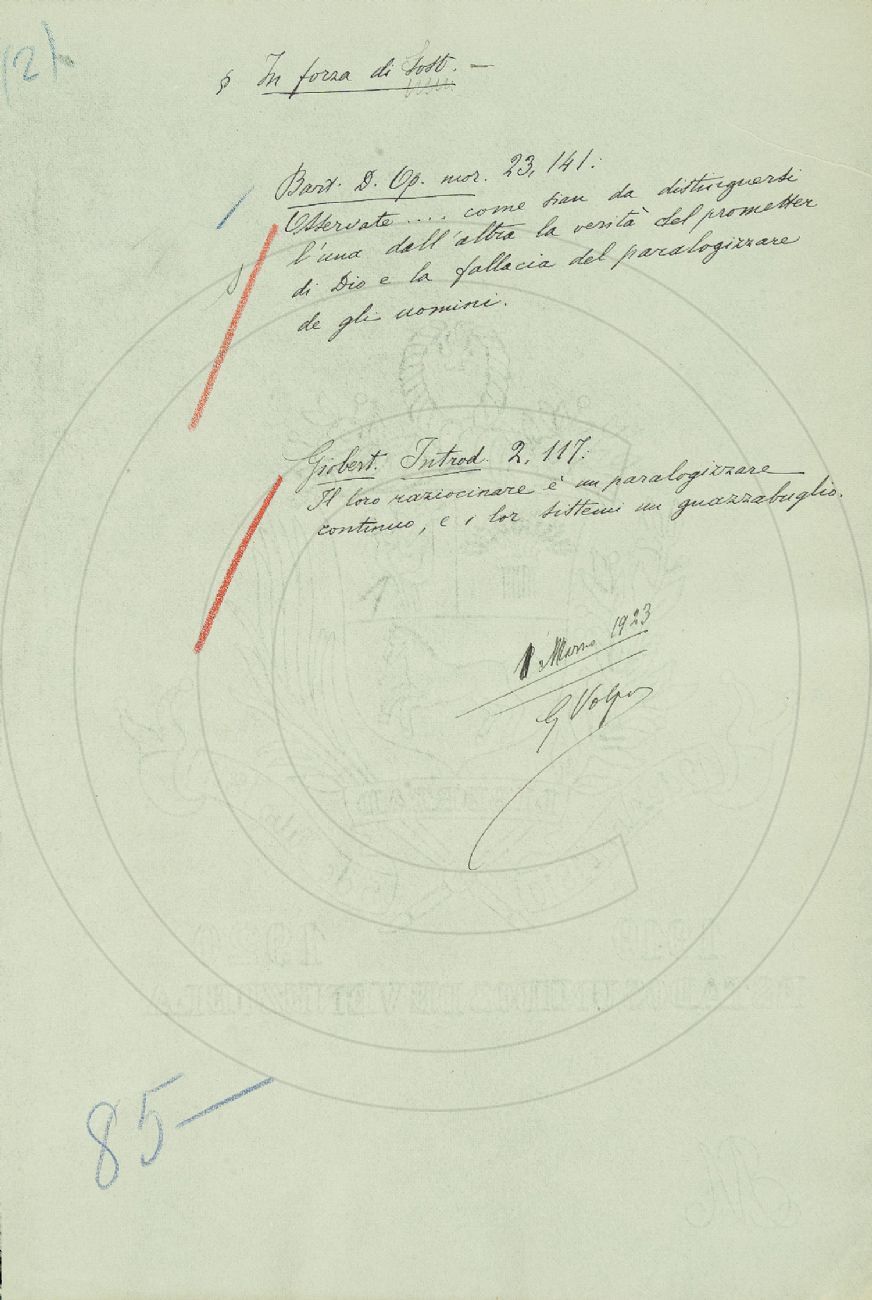 (2)
§ In forza di Sost. —
Bart. D. Op. mor. 23, 141:
Osservate .... come sian da distinguersi
l'una dall'altra la verità del prometter
di Dio e la fallacia del paralogizzare
de gli uomini.
Giobert. Introd. 2, 117:
Il loro raziocinare è un paralogizzare
continuo, e i lor sistemi un guazzabuglio.
8 Marzo 1923
G Volpi
85 —